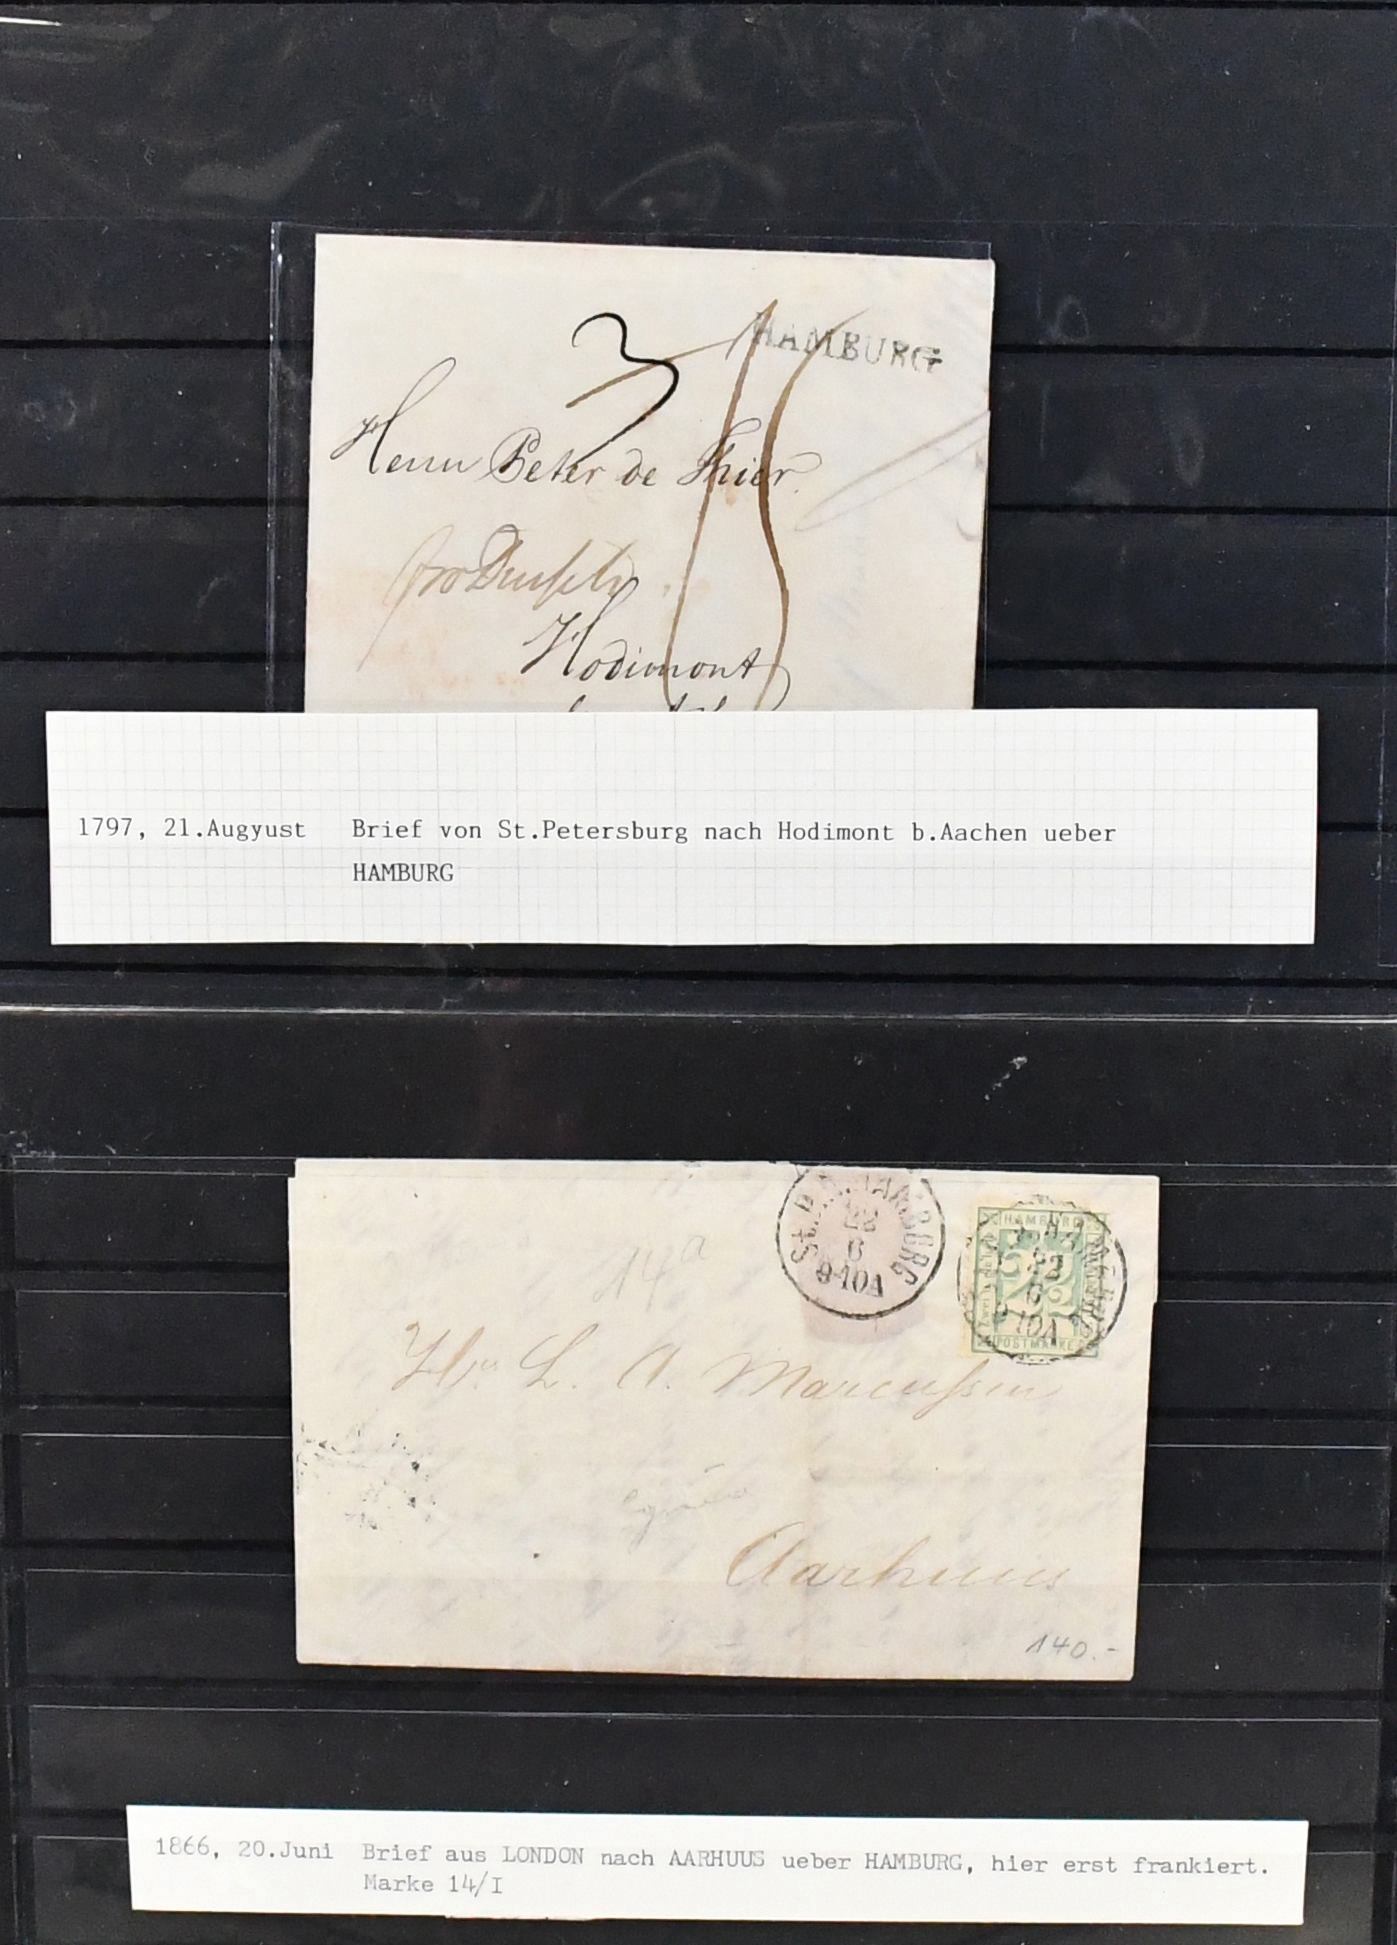 3
HAMBURG
Herrn Peter de Thier.
Hodimont
1797, 21.Augyust Brief von St.Petersburg nach Hodimont b.Aachen ueber
HAMBURG
St.P.A. HAMBURG
22
6
9-10A
HAMBURG
22
6
9-10A
POSTMARKE
14a
L. A. Marcussen
Aarhuus
140.-
1866, 20.Juni Brief aus LONDON nach AARHUUS ueber HAMBURG, hier erst frankiert.
Marke 14/I